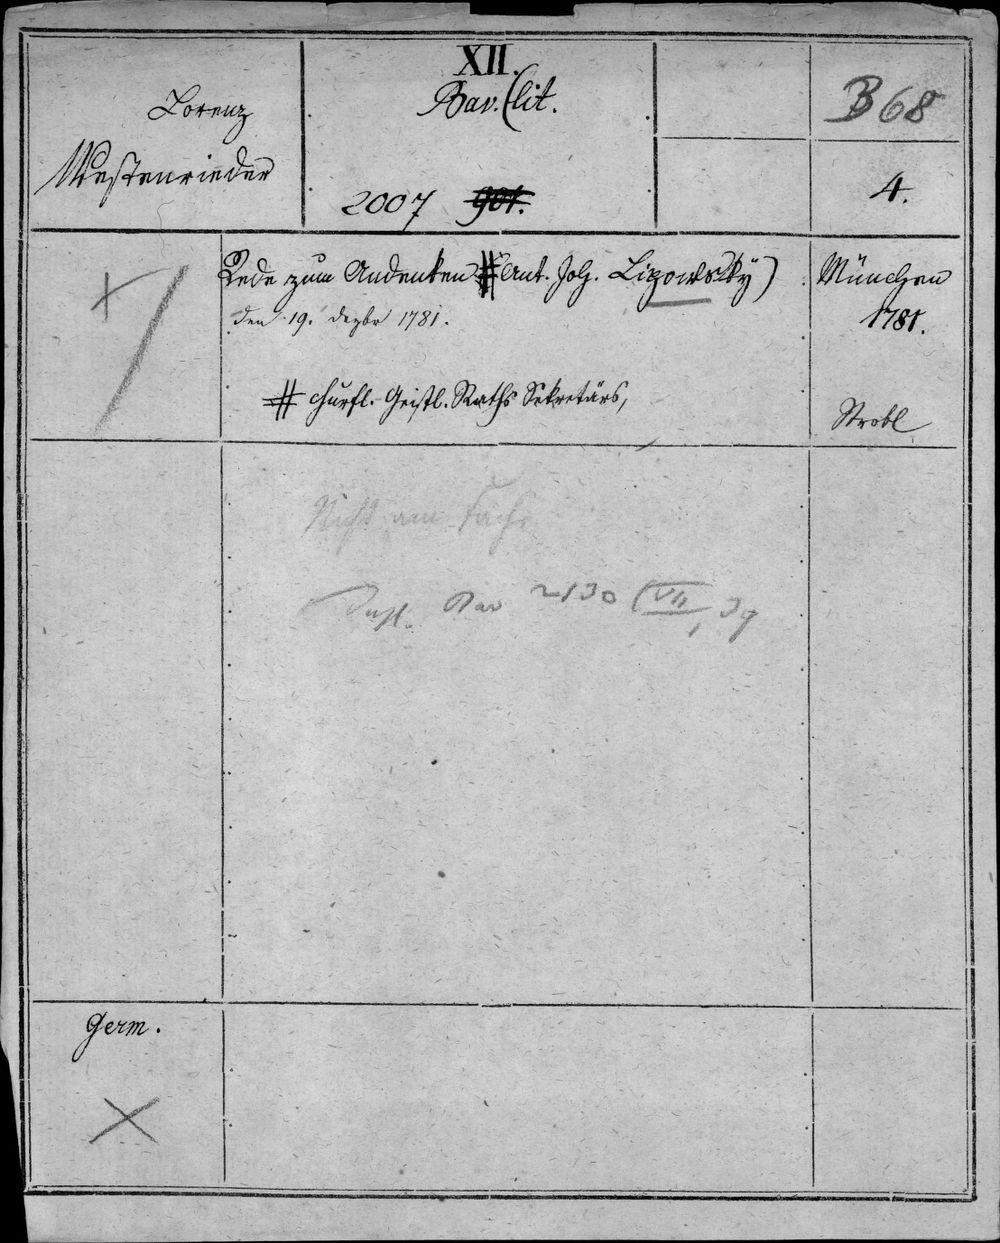 XII.
Bav. (lit.
Lorenz
Westenrieder
2007 901.
B 68
4.
Rede zum Andenken # (Ant. Joh. Lipowsky)
den 19. dezbr 1781.
# churfl. Geistl. Raths Sekretärs,
München
1781.
Strobl
Nicht am Fach
Bav 2130 (VII, 39
Germ.